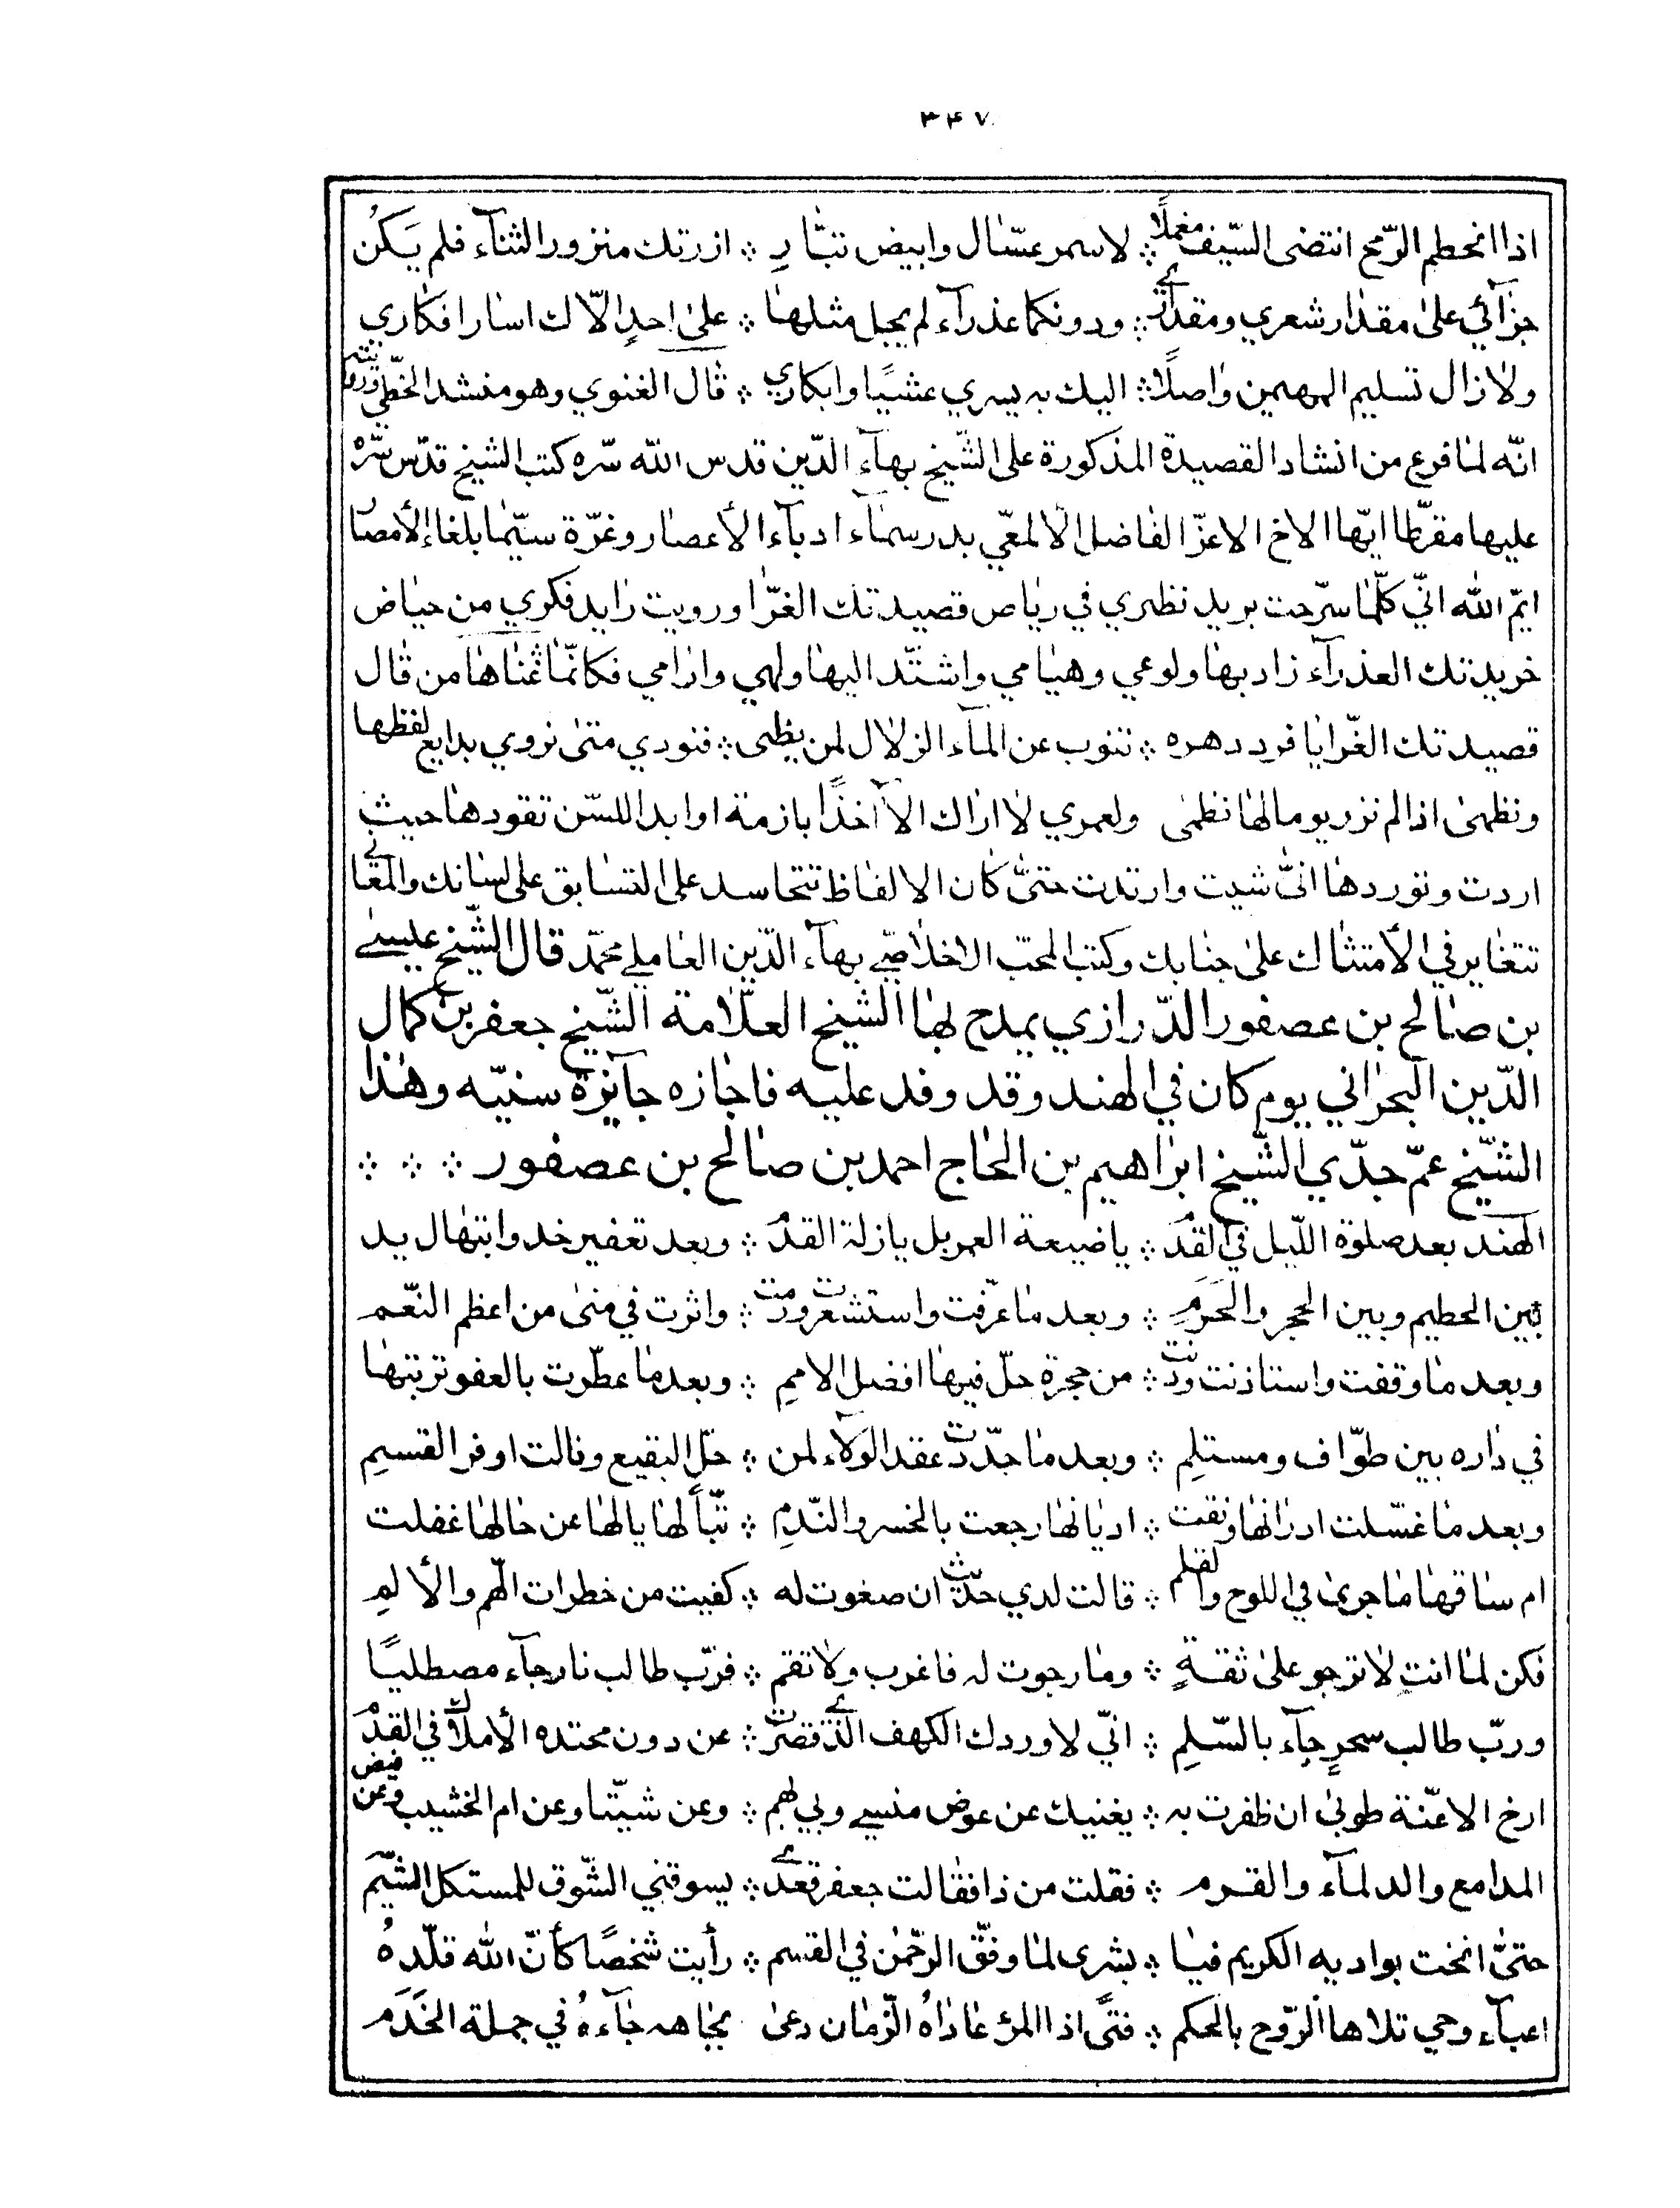 ۳۴۷
اذا انحطم الرّمح انتضى السّيف مغملًا ؞ لاسمر عسّال وابيض تبّار ؞ ازرتك منزور الثنآء فلم يَكُن
جزآئي على مقدار شعري ومقداري ؞ ودونكما عذرآء لم يجل مثلها ؞ على احدٍ الّا ك اسار افكاري
ولا زال تسليم المهيمن واصلًا ؞ اليك به يسري عشيًا وابكاري ؞ قال الغنوي وهو منشد الخطّي
انّه لما فرع من انشاد القصيدة المذكورة على الشّيخ بهآء الدّين قدس اللّه سّره كتب الشيخ قدّس سّره
عليها مقرّظا ايّها الاخ الاعزّ الفاضل الالمعّي بدر سمآء ادبآء الأعصار وغرّة سيّما بلغاء الأمصا
ايمّ اللّه انّي كلّما سرّحت بريد نظري في رياض قصيدتك الغرّا ورويت رايد فكري من حياض
خريدتك العذرآء زاد بها ولوعي وهيامي واشتّد اليها ولهي واوامي فكانّما عناها من قال
قصيدتك الغّرا يا فرد دهره ؞ تنوب عن المآء الزلال لمن يظمى ؞ فنروي متى نروي بدايع لفظها
ونظمئ اذا لم نرو يوما لها نظمى ولعمري لا اراك الا آخذًا بازمة اوابد اللسّن تقودها حيث
اردت وتوردها انّى شيت وارتدت حتىّ كان الالفاظ تتحاسد على التسابق على لسانك والمعا
تتغاير في الأمتثال على جنابك وكتب المحب الاخلاصّي بهآء الدّين العاملي محمّد قال الشّيخ عيسى
بن صالح بن عصفور الدّرازي يمدح بها الشّيخ العلّامة الشّيخ جعفر بن كمال
الدّين البحراني يوم كان في الهند وقد وفد عليه فاجازه جآيزة سنيّه وهذا
الشّيخ عمّ جدّي الشّيخ ابراهيم بن الحاج احمد بن صالح بن عصفور ؞ ؞ ؞
الهند بعد صلوة اللّيل في القدم ؞ يا ضيعة العمر بل يا زلة القدم ؞ وبعد تعفير خد وابتهال يد
بين الحطيم وبين الحجر والحَرَمِ ؞ وبعد ما عرّفت واستشعرت ورمت ؞ واثرت في منى من اعظم النّعم
وبعد ما وقفت واستاذنت ودنت ؞ من حجرة حلّ فيها افضل الاممِ ؞ وبعد ما عطّرت بالعفو تربتها
في داره بين طوّاف ومستلِم ؞ وبعد ما جدّدت عقد الولآء لمن ؞ حلّ البقيع ونالت اوفر القسيمِ
وبعد ما غسّلت ادرانها ونقت ؞ اديانها رجعت بالخسر والنّدمِ ؞ تّبًا لها يا لها عن حالها غفلت
ام ساقها ما جرى في اللوح والقلم ؞ قالت لدي حدّيث ان صغوت له ؞ كفيت من خطرات الهّم والألمِ
فكن لما انتِ لا ترجو على ثقةٍ ؞ وما رجوت له فاغرب ولا تقم ؞ فربّ طالب نار جآء مصطليًا
وربّ طالب سحرٍ جآء بالسّلمِ ؞ انّي لاوردك الكهف الّذي قصرت ؞ عن دون محتده الأملاك في القدم
ارخ الاعّنة طوبى ان ظفرت به ؞ يغنيك عن عوض منسي وبي لهم ؞ وعن شيّتا وعن ام الخشيب وعن فيض
المدامع والدلمآء والقرم ؞ فقلت من ذا فقالت جعفر فعدى ؞ يسوقني الشّوق للمستكل الشّيم
حتىّ انخت بواديه الكريم فيا ؞ بشرى لما وفّق الرحّمن في القسم ؞ رأيت شخصًا كأنّ اللّه قلّدهُ
اعبآء وحي تلاها الرّوح بالحكم ؞ فتىً اذا المرؤ عاداهُ الزّمان دعى بجاهه جآءهُ في جملة الخَدَم